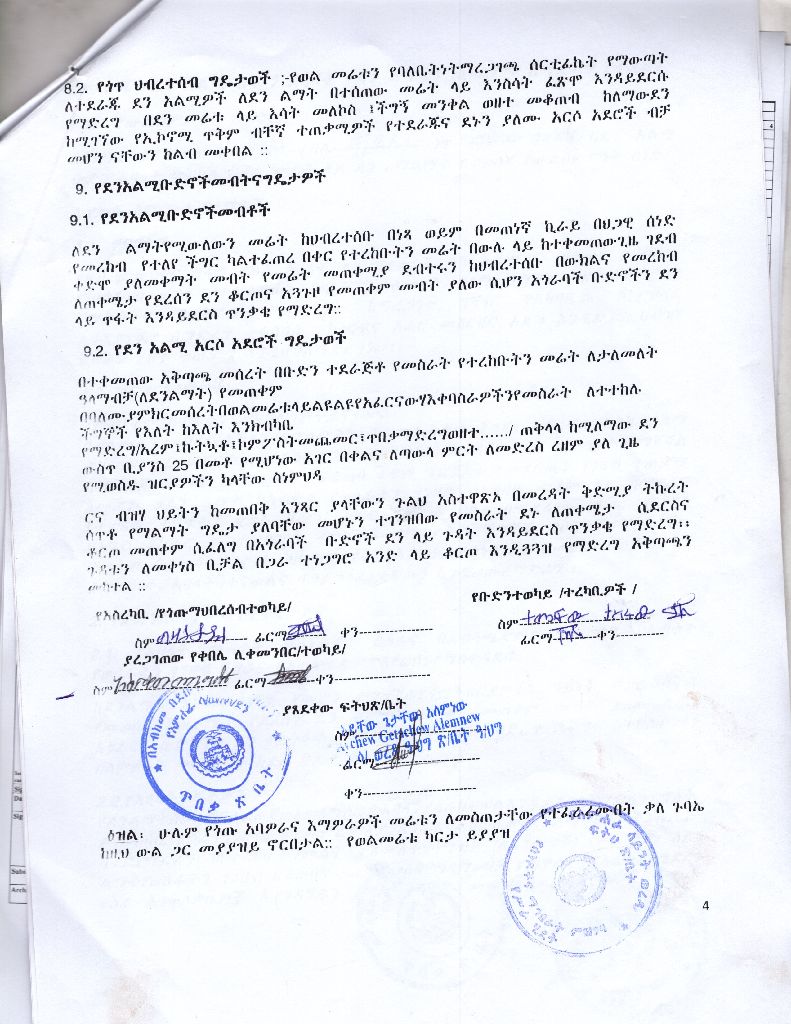 8.2. የጎጥ ህብረተሰብ ግዴታወች ;-የወል መሬቱን የባለቤትነትማረጋገጫ ሰርቲፊኬት የማውጣት
ለተደራጁ ደን አልሚዎች ለደን ልማት በተሰጠው መሬት ላይ እንስሳት ፈጽሞ እንዳይደርሱ
የማድረግ በደን መሬቱ ላይ እሳት መለኮስ ፤ችግኝ መንቀል ወዘተ መቆጠብ ከለማውደን
ከሚገኘው የኢኮኖሚ ጥቅም ብቸኛ ተጠቃሚዎች የተደራጁና ደኑን ያለሙ አርሶ አደሮች ብቻ
መሆን ናቸውን ከልብ መቀበል ::
9. የደንአልሚቡድኖችመብትናግዴታዎች
9.1. የደንአልሚቡድኖችመብቶች
ለደን ልማትየሚውለውን መሬት ከህብረተሰቡ በነጻ ወይም በመጠነኛ ኪራይ በህጋዊ ሰነድ
የመረከብ የተለየ ችግር ካልተፈጠረ በቀር የተረከቡትን መሬት በውሉ ላይ ከተቀመጠውጊዜ ገደብ
ቀድሞ ያለመቀማት መብት የመሬት መጠቀሚያ ደብተሩን ከህብረተሰቡ በውክልና የመረከብ
ለጠቀሜታ የደረሰን ደን ቆርጦና አጓጉዞ የመጠቀም መብት ያለው ሲሆን አጎራባች ቡድኖችን ደን
ላይ ጥፋት እንዳይደርስ ጥንቃቄ የማድረግ::
9.2. የደን አልሚ አርሶ አደሮች ግዴታወች
በተቀመጠው አቅጣጫ መሰረት በቡድን ተደራጅቶ የመስራት የተረከቡትን መሬት ለታለመለት
ዓላማብቻ(ለደንልማት) የመጠቀም
በባለሙያምክርመሰረትበወልመሬቱላይልዩልዩየአፈርናውሃእቀባስራዎችንየመስራት ለተተከሉ
ችግኞች የእለት ከእለት እንክብካቤ
የማድረግ/አረም፤ኩትኳቶ፤ኮምፖስትመጨመር፤ጥበቃማድረግወዘተ....../ ጠቅላላ ከሚለማው ደን
ውስጥ ቢያንስ 25 በመቶ የሚሆነው አገር በቀልና ለጣውላ ምርት ለመድረስ ረዘም ያለ ጊዜ
የሚወስዱ ዝርያዎችን ካላቸው ስነምህዳ
ርና ብዝሃ ህይትን ከመጠበቅ አንጻር ያላቸውን ጉልህ አስተዋጽኦ በመረዳት ቅድሚያ ትኩረት
ሰጥቶ የማልማት ግዴታ ያለባቸው መሆኑን ተገንዝበው የመስራት ደኑ ለጠቀሜታ ሲደርስና
ቆርጦ መጠቀም ሲፈለግ በአጎራባች ቡድኖች ደን ላይ ጉዳት እንዳይደርስ ጥንቃቄ የማድረግ፡፡
ጉዳቱን ለመቀነስ ቢቻል በጋራ ተነጋግሮ አንድ ላይ ቆርጦ እንዲጓጓዝ የማድረግ አቅጣጫን
መከተል ::
የአስረካቢ /የጎጡማህበረሰብተወካይ/
የቡድንተወካይ /ተረካቢዎች /
ስም---- ፊርማ ቀን---------------
ስም
ፊርማ ቀን------------
ያረጋገጠው የቀበሌ ሊቀመንበር/ተወካይ/
ስም ፊርማ ቀን-------------------
ያጸደቀው ፍትህጽ/ቤት
ስም ይቸው ጌታቸው አለምነው
ychew Getachew Alemnew
ፊርማ
ቀን-----------------------
ጥበቃ ጽ ቤት
ዕዝል፡ ሁሉም የጎጡ አባዎራና እማዎራዎች መሬቱን ለመስጠታቸው የተፈራረሙበት ቃለ ጉባኤ
ከዚህ ውል ጋር መያያዝይ ኖርበታል:: የወልመሬቱ ካርታ ይያያዝ
ፍትህ ጽ/ቤት
4